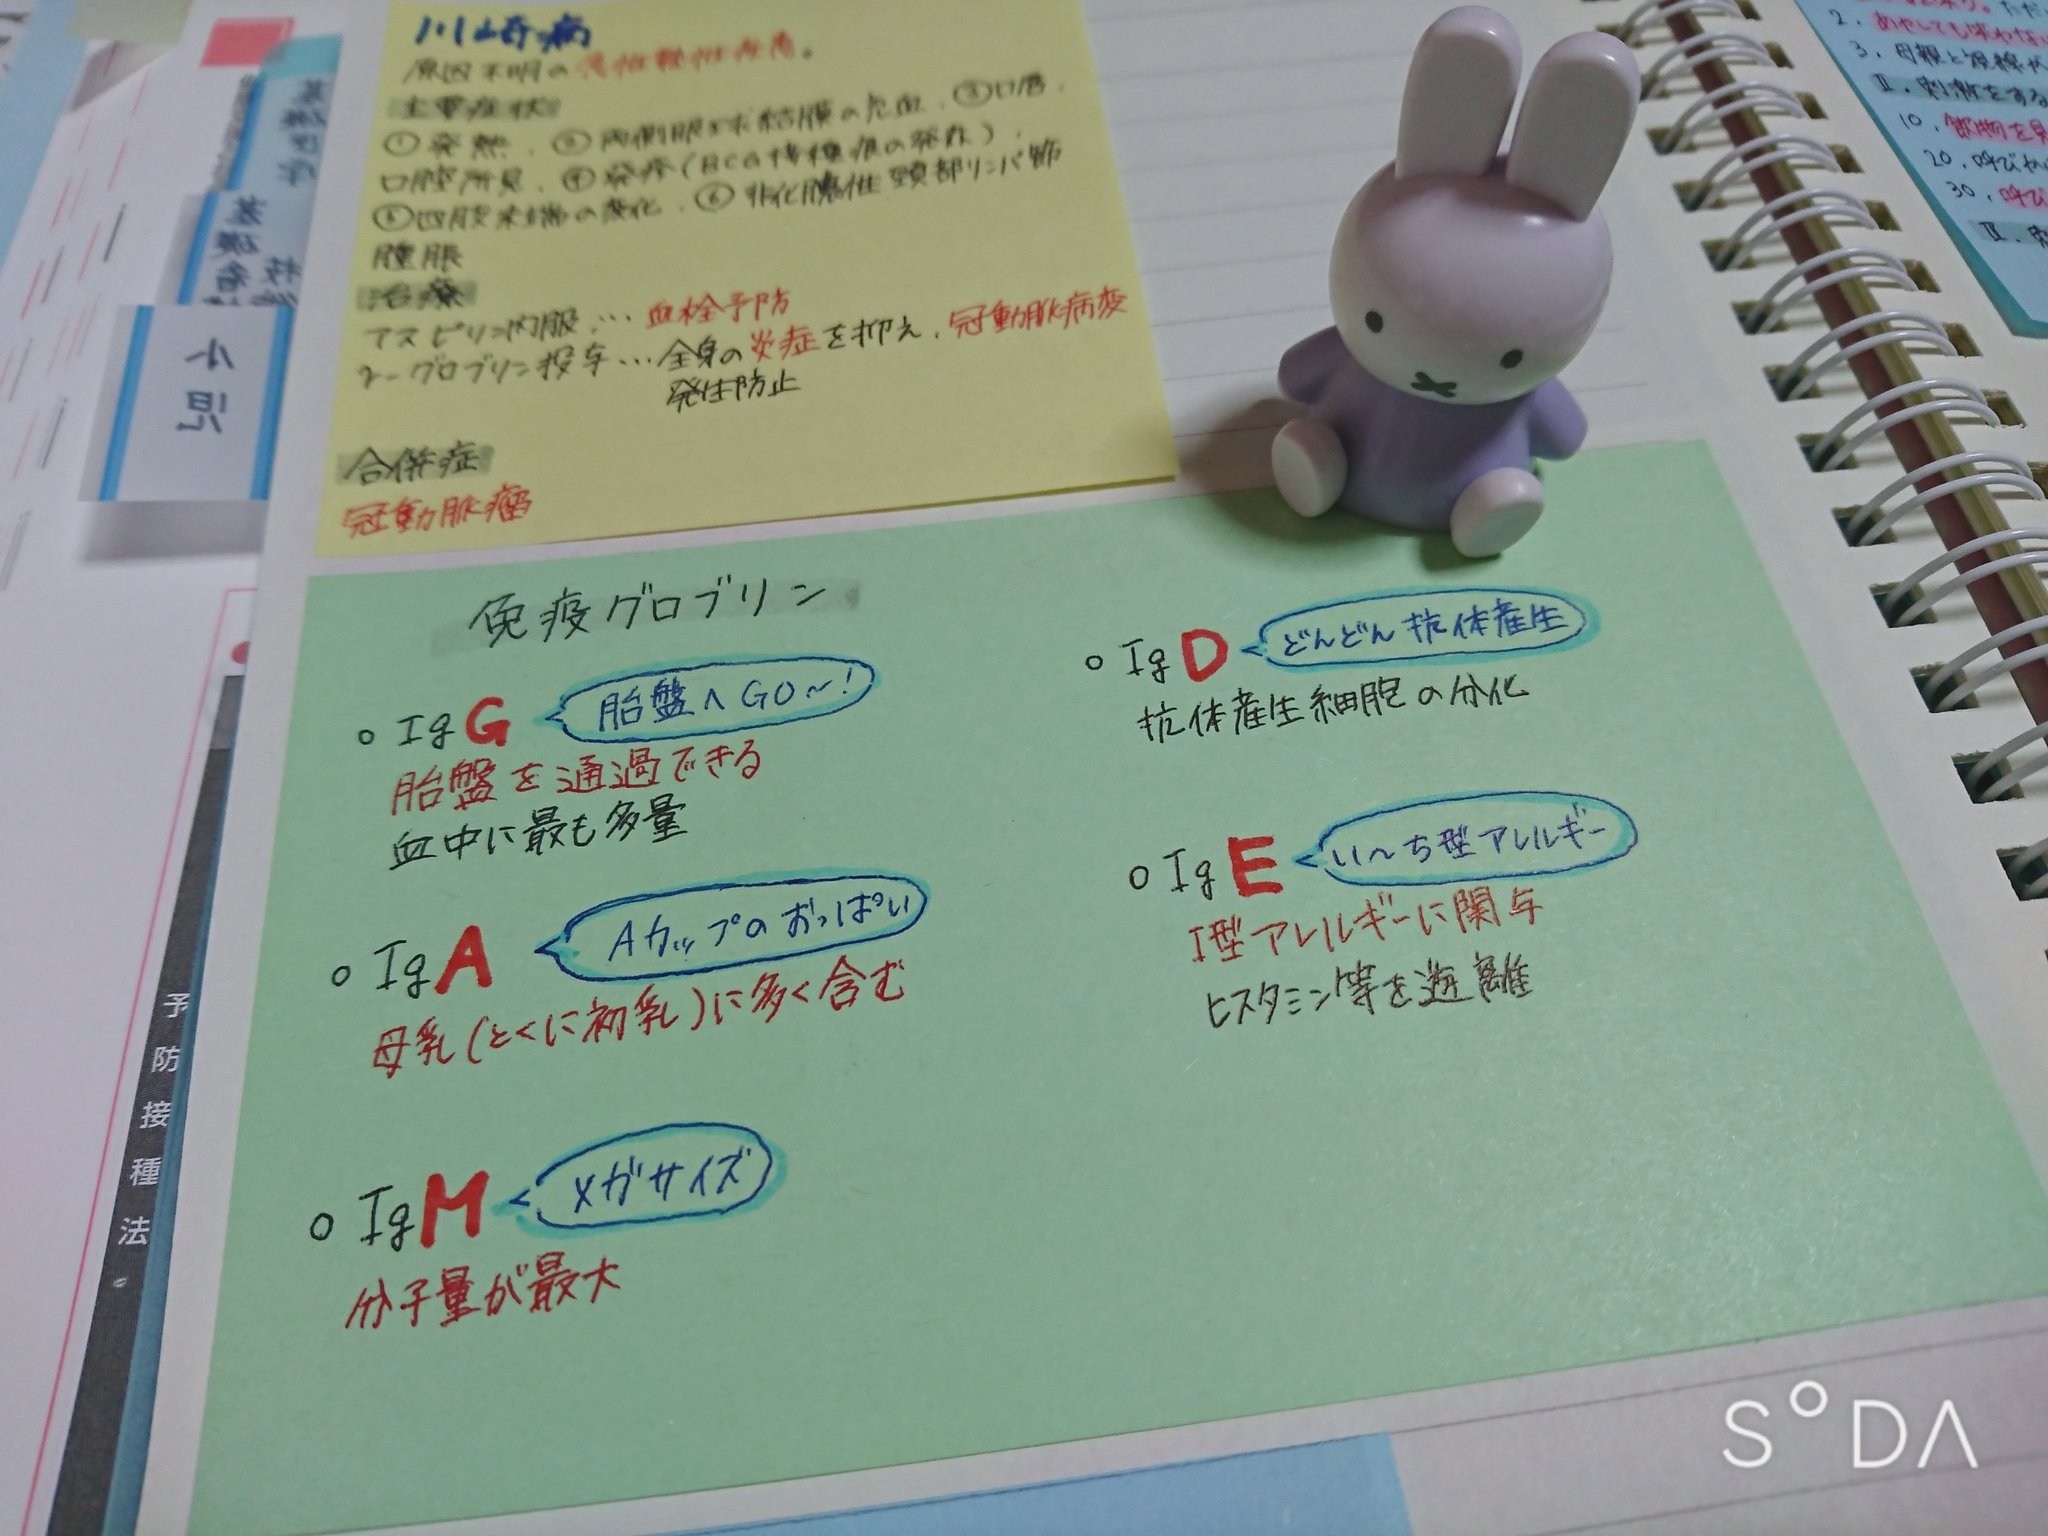 川崎病
原因不明の急性熱性疾患。
主要症状
①発熱、②両側眼球結膜の充血、③口唇、
口腔所見、④発疹(BCG接種痕の発赤)、
⑤四肢末端の変化、⑥非化膿性頸部リンパ節
腫脹
治療
アスピリン内服…血栓予防
γ-グロブリン投与…全身の炎症を抑え、冠動脈病変
発生防止
合併症
冠動脈瘤
免疫グロブリン
○ IgG
胎盤へGO〜!
胎盤を通過できる
血中に最も多量
○ IgA
Aカップのおっぱい
母乳(とくに初乳)に多く含む
○ IgM
メガサイズ
分子量が最大
○ IgD
どんどん抗体産生
抗体産生細胞の分化
○ IgE
い〜ち型アレルギー
I型アレルギーに関与
ヒスタミン等を遊離
小児
予防接種法。
2.
3. 母親と視線が
II. 刺激をする
10.
20. 呼びか
30. 呼び
III.
S°DA